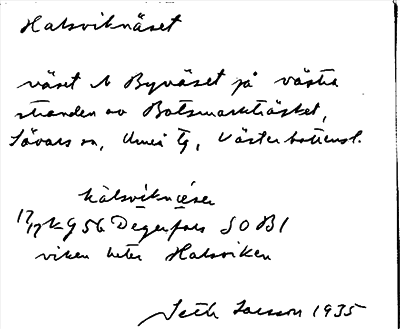 Halsviknäset
näset N Byväset på västra
stranden av Botsmarksträsket,
Sävars sn, Umeå tg, Västerbottensl.
hálsvíknǽsen
K 9 56 Degerfors SOBl
viken heter Halsviken
Seth Larsson 1935